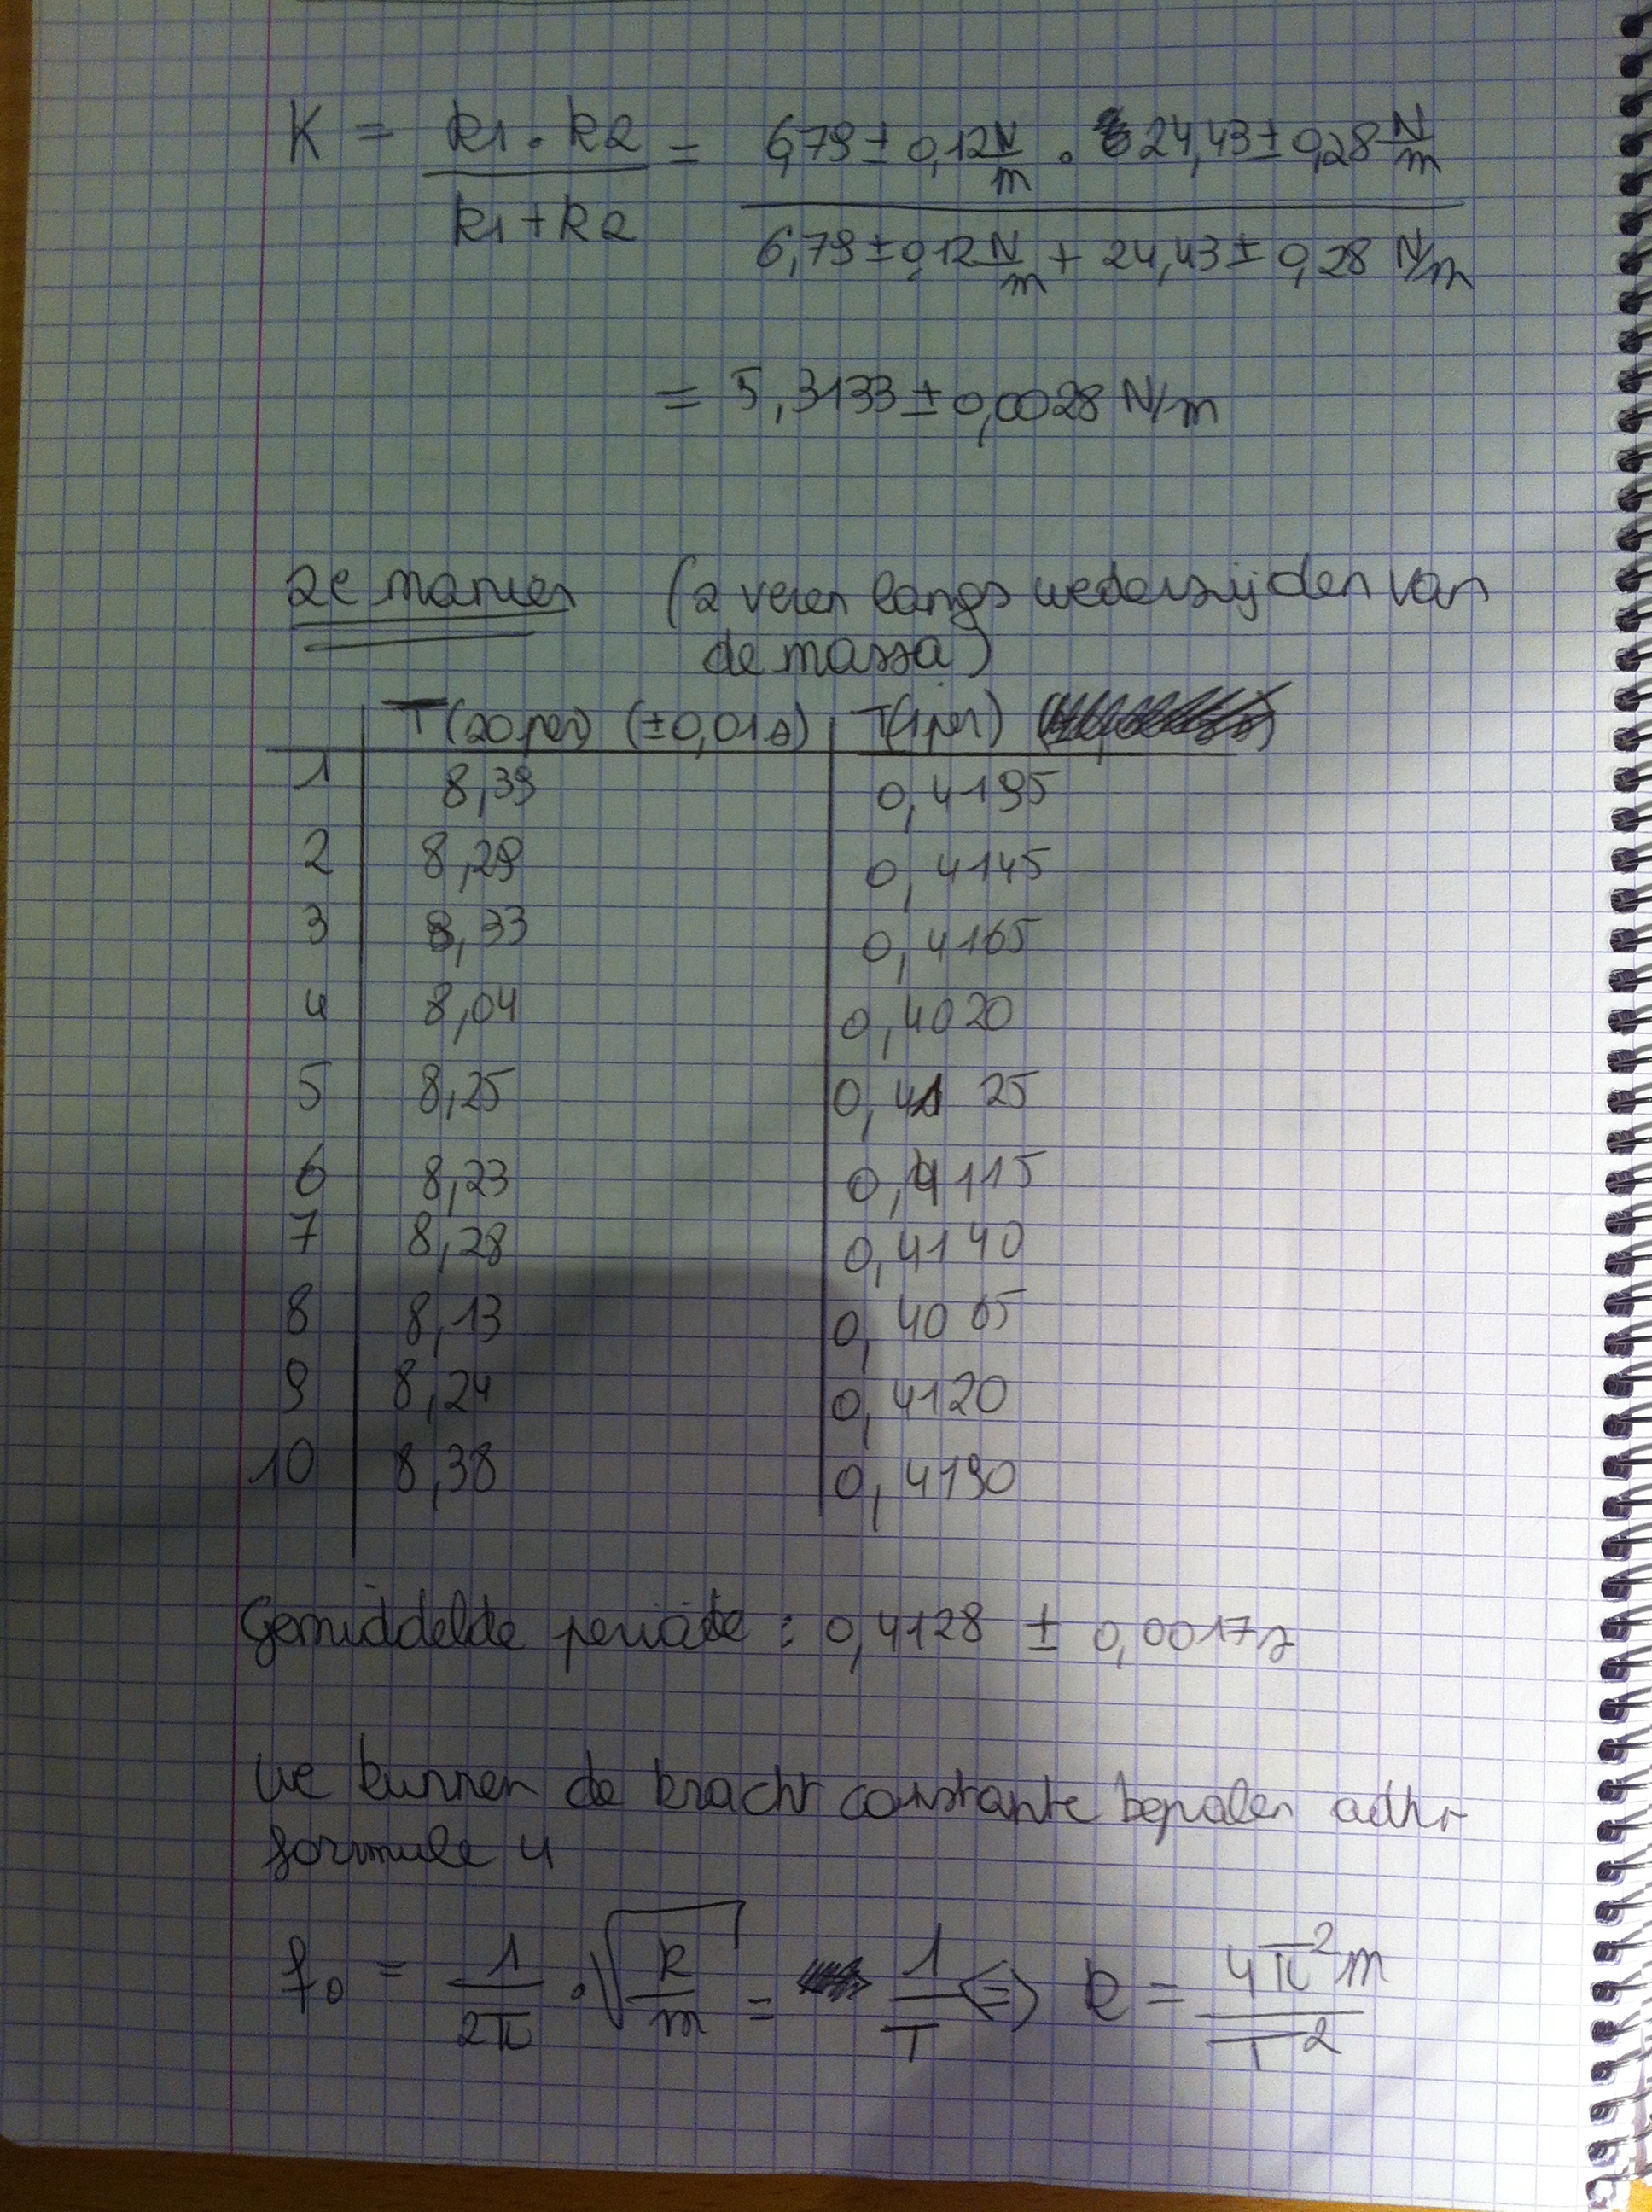 K = k1 . k2 / k1 + k2 = 6,79 ± 0,12 N/m . 24,43 ± 0,28 N/m / 6,79 ± 0,12 N/m + 24,43 ± 0,28 N/m
= 5,3133 ± 0,0028 N/m
2e manier (2 veren langs wederzijden van
de massa)
T(20 per) (±0,01s) T(1 per)
1 8,39 0,4195
2 8,29 0,4145
3 8,33 0,4165
4 8,04 0,4020
5 8,25 0,4125
6 8,23 0,4115
7 8,28 0,4140
8 8,13 0,4065
9 8,24 0,4120
10 8,38 0,4190
Gemiddelde periode : 0,4128 ± 0,0017s
We kunnen de kracht constante bepalen
formule 4
f0 = 1/2π . √(k/m) = 1/T <=> k = 4π²m/T²